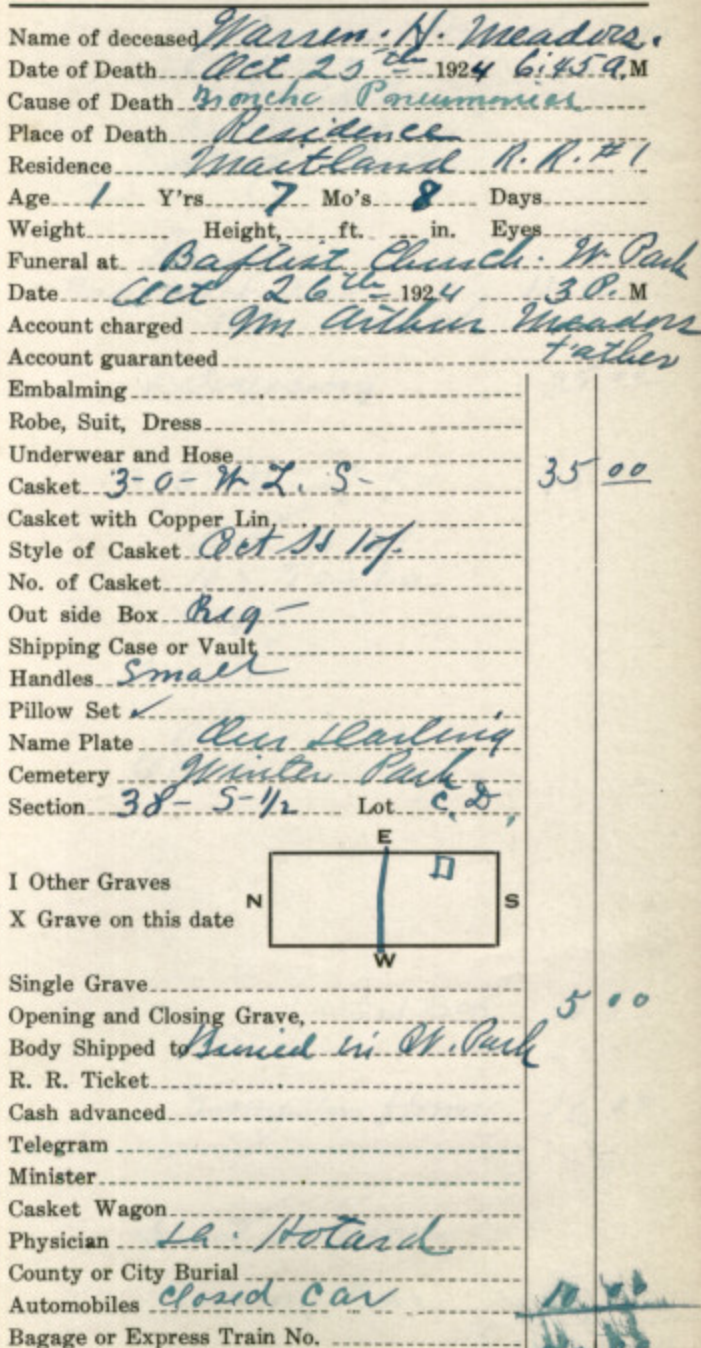 Name of deceased Warren. H. Meadors.
Date of Death Oct 25th 1924 6:45 a. M
Cause of Death Broncho Pneumonia
Place of Death Residence
Residence Maitland R. R. #1
Age 1 Y'rs 7 Mo's 8 Days
Weight Height, ft. in. Eyes
Funeral at Baptist Church. W. Park
Date Oct 26th 1924 3 P. M
Account charged Mr Arthur Meadors
Account guaranteed Father
Embalming
Robe, Suit, Dress
Underwear and Hose
Casket 3-0- W. L. S- 35 00
Casket with Copper Lin.
Style of Casket Oct
No. of Casket
Out side Box Reg -
Shipping Case or Vault
Handles Small
Pillow Set ✓
Name Plate Our Darling
Cemetery Winter Park
Section 38- S-1/2 Lot C, D,
E
I Other Graves
N S
X Grave on this date
W
Single Grave
Opening and Closing Grave, 5 00
Body Shipped to Buried in W. Park
R. R. Ticket
Cash advanced
Telegram
Minister
Casket Wagon
Physician Hotard
County or City Burial
Automobiles Closed Car 10 00
Bagage or Express Train No.